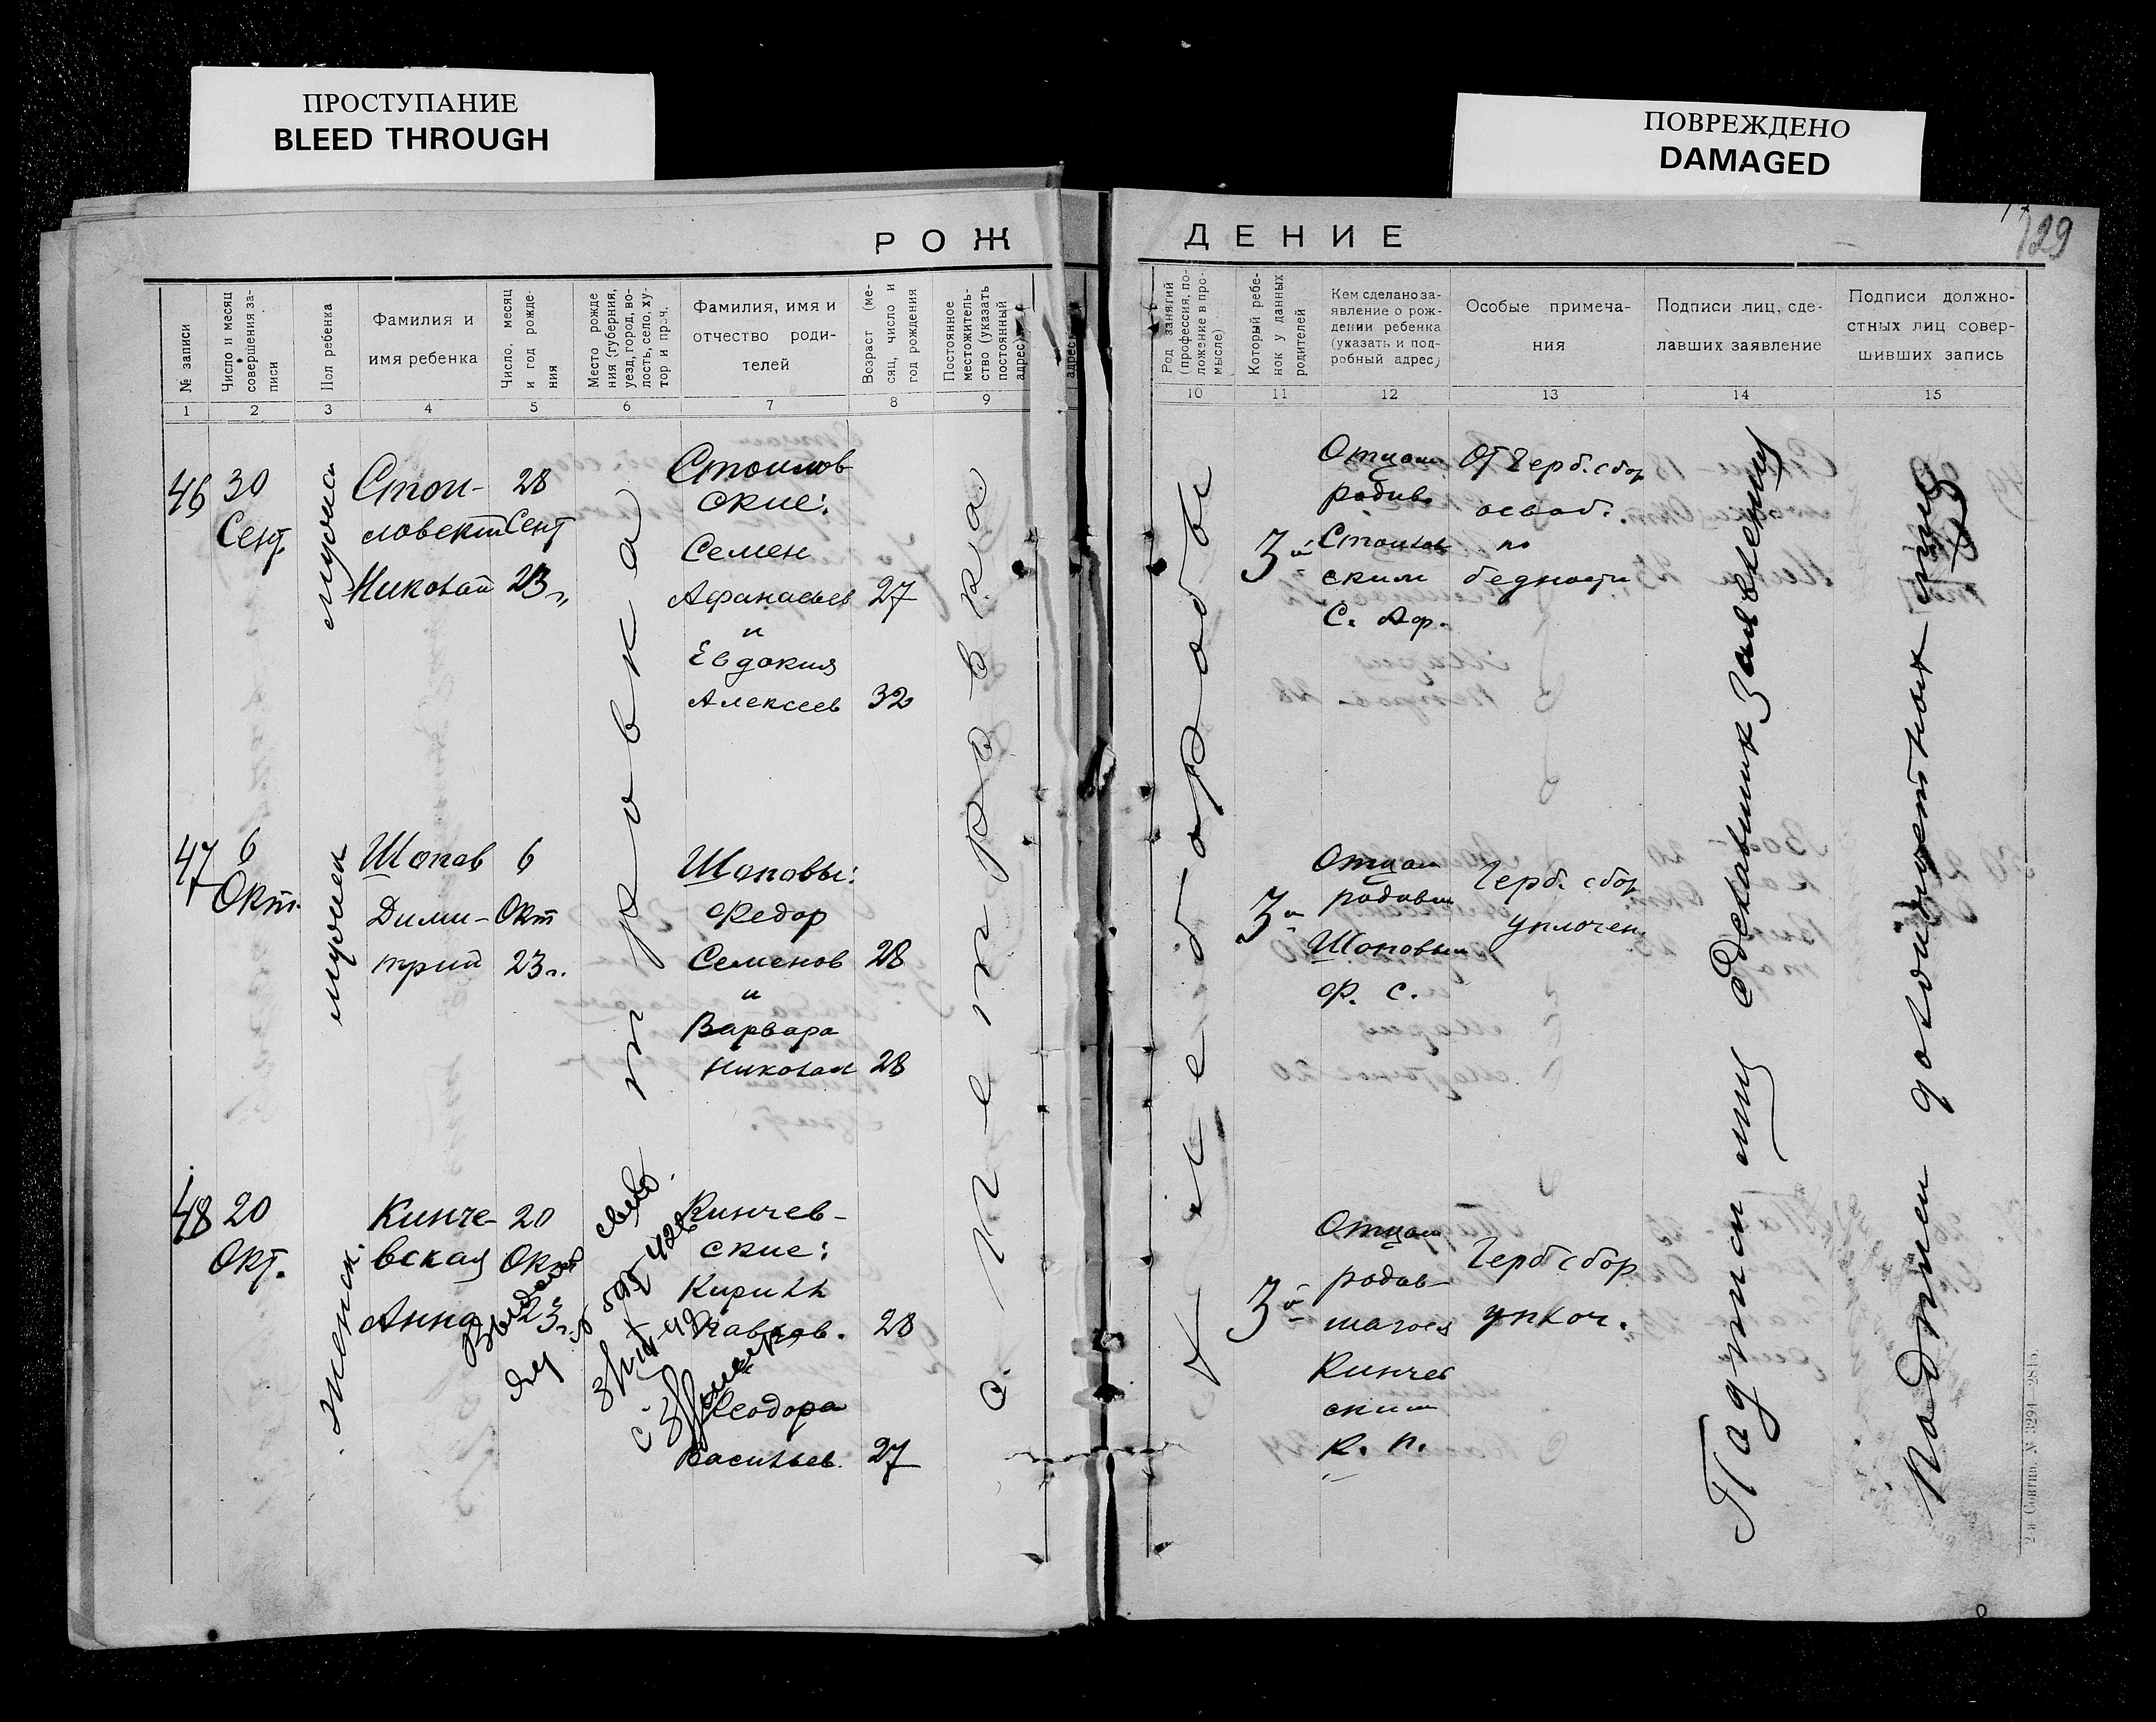 ПРОСТУПАНИЕ
BLEED THROUGH
ПОВРЕЖДЕНО
DAMAGED
129
РОЖДЕНИЕ
№ записи
Число и месяц
совершения за-
писи
Пол ребенка
Фамилия и
имя ребенка
Число, месяц
и год рожде-
ния
Место рожде
ния (губерния,
уезд, город, во-
лость, село, ху-
тор и проч.
Фамилия, имя и
отчество роди-
телей
Возраст (ме-
сяц, число и
год рождения
Постоянное
местожитель-
ство (указать
постоянный
адрес)
адрес)
Род занятий
(профессия, по-
ложение в про-
мысле)
Который ребе-
нок у данных
родителей
Кем сделано за-
явление о рож-
дении ребенка
(указать и под-
робный адрес)
Особые примеча-
ния
Подписи лиц, сде-
лавших заявление
Подписи должно-
стных лиц совер-
шивших запись
1 2 3 4 5 6 7 8 9 10 11 12 13 14 15
46
30
Сент.
мужск
Стои-
ловский
Николай
28
Сент
23 г.
Стоилов-
ские:
Семен
Афанасьев 27
и
Евдокия
Алексеев 32
3й
Отцом
родив.
Стоилов
ским
С. Аф.
От Герб. сбор
освоб.
по
бедности
47
6
Окт.
мужск
Шопов
Дими-
трий
6
Окт
23 г.
Шоповы:
Федор
Семенов 28
и
Варвара
Николаев 28
3й
Отцом
родивш
Шоповым
Ф. С.
Герб. сбор
уплочен
48
20
Окт.
женск.
Кинче-
вская
Анна
20
Окт
23 г.
Кинчев-
ские:
Кирилл
Павлов. 28
и
Феодора
Васильев. 27
3й
Отцом
родив-
шагося
Кинчев
ским
К. П.
Герб сбор
уплоч.
Выдано
свид.
с. Петровка
тровка
Хлебороды
Подписи лиц сделавших Заявления
Подписи должностных лиц
2-я Совтип. № 3294—2815.